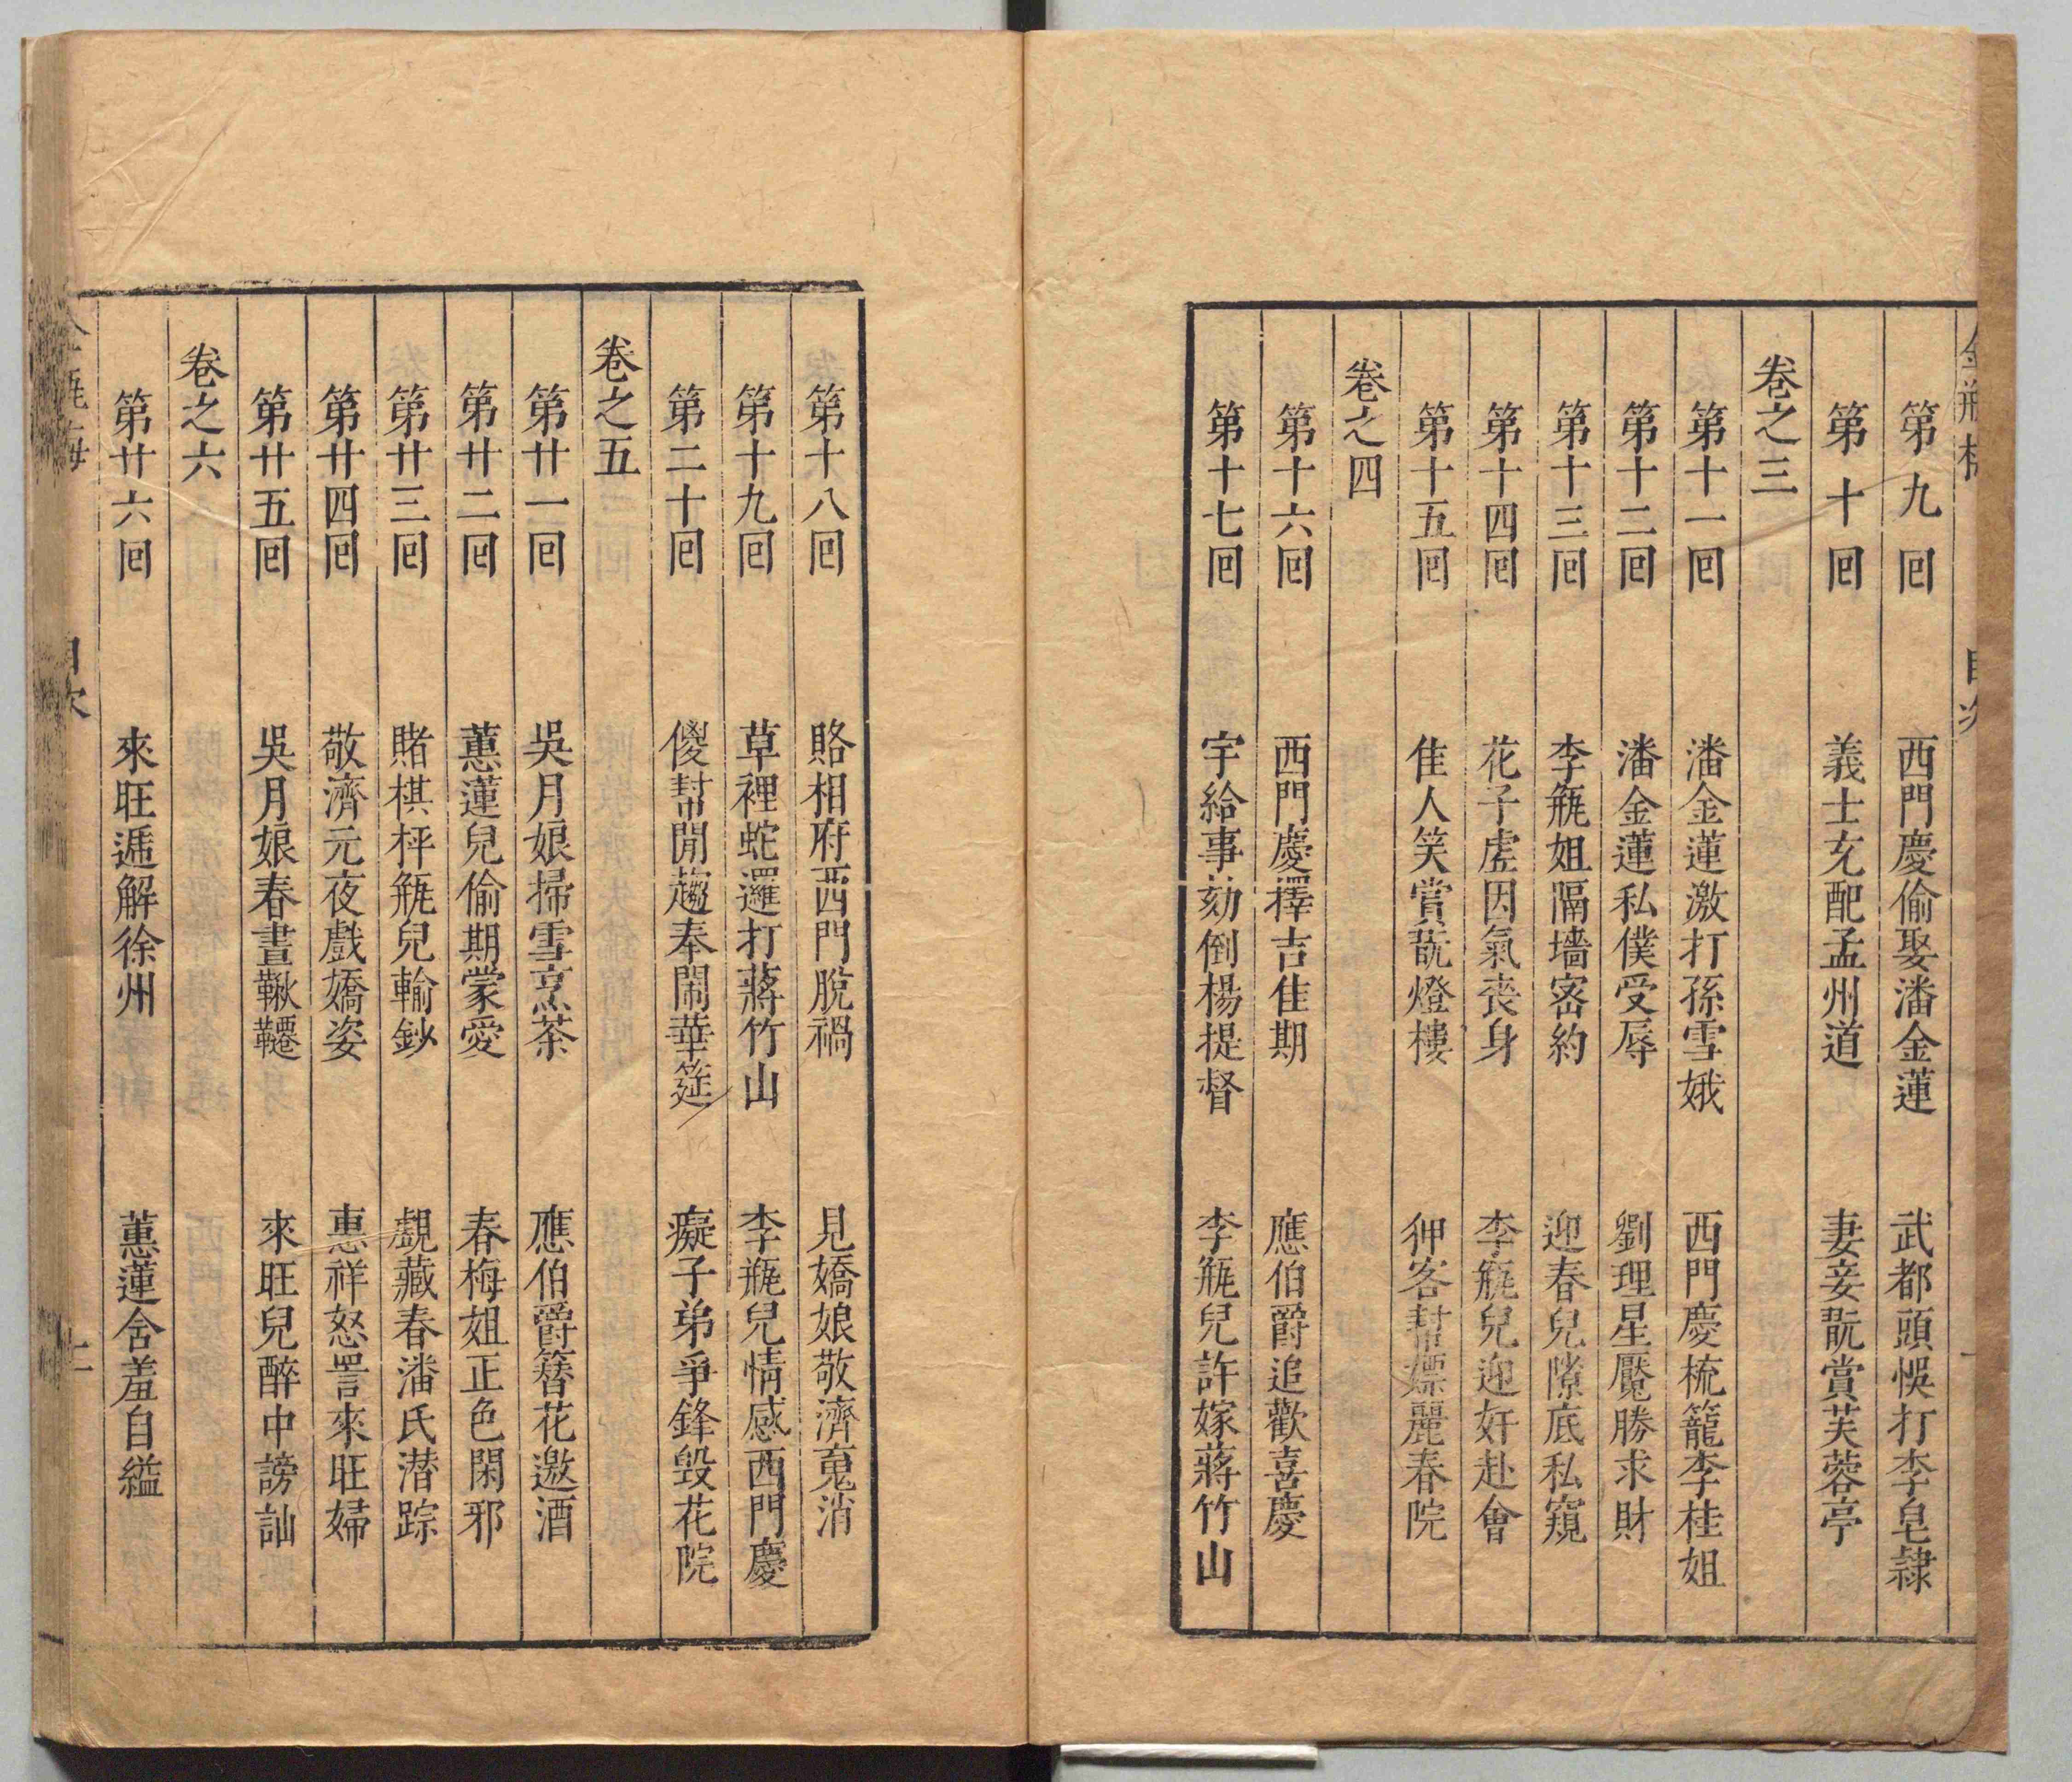 金瓶梅 目次 一
第九回 西門慶偷娶潘金蓮 武都頭悞打李皂隸
第十回 義士充配孟州道 妻妾翫賞芙蓉亭
卷之三
第十一回 潘金蓮激打孫雪娥 西門慶梳籠李桂姐
第十二回 潘金蓮私僕受辱 劉理星魘勝求財
第十三回 李瓶姐隔墻密約 迎春兒隙底私窺
第十四回 花子虛因氣喪身 李瓶兒迎奸赴會
第十五回 佳人笑賞翫燈樓 狎客幫嫖麗春院
卷之四
第十六回 西門慶擇吉佳期 應伯爵追歡喜慶
第十七回 宇給事劾倒楊提督 李瓶兒許嫁蔣竹山
第十八回 賂相府西門脫禍 見嬌娘敬濟䰟消
第十九回 草裡蛇邏打蔣竹山 李瓶兒情感西門慶
第二十回 傻幫閒趨奉鬧華筵 癡子弟爭鋒毀花院
卷之五
第廿一回 吳月娘掃雪烹茶 應伯爵簪花邀酒
第廿二回 蕙蓮兒偷期蒙愛 春梅姐正色閑邪
第廿三回 賭棋枰瓶兒輸鈔 覷藏春潘氏潛踪
第廿四回 敬濟元夜戲嬌姿 惠祥怒詈來旺婦
第廿五回 吳月娘春晝鞦韆 來旺兒醉中謗訕
卷之六
第廿六回 來旺遞解徐州 蕙蓮含羞自縊
金瓶梅 目次 二